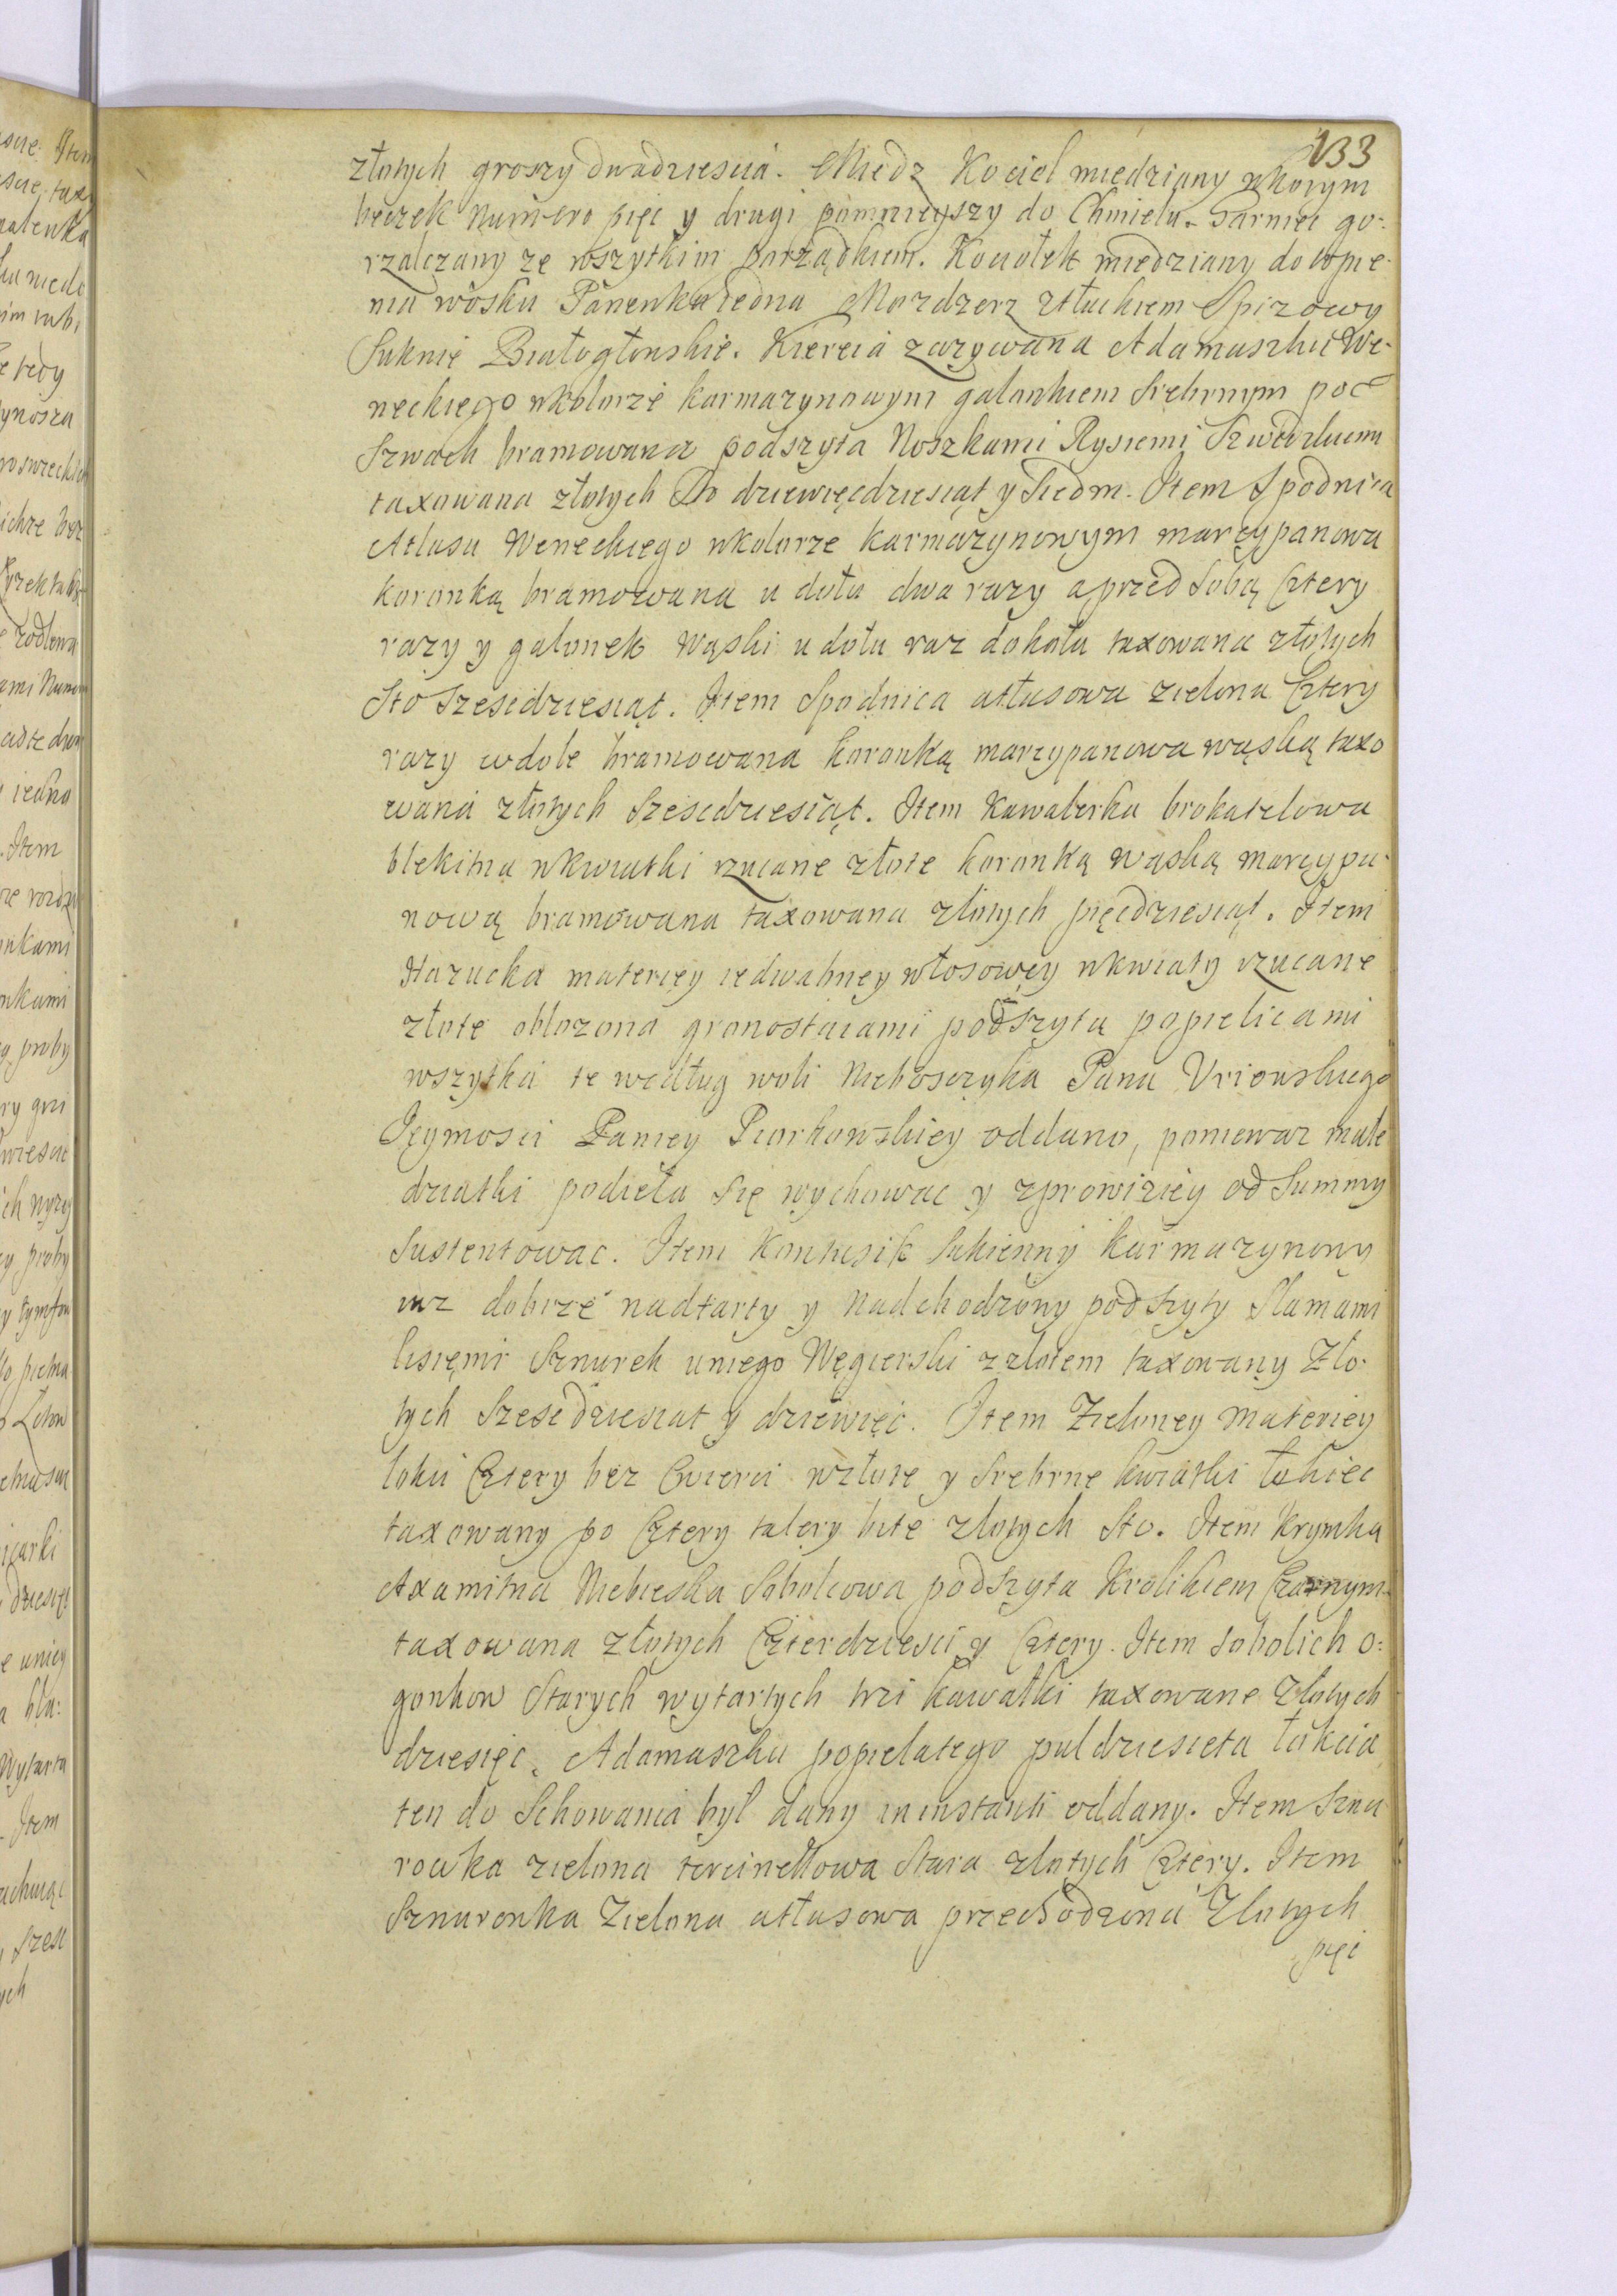 133
złotych groszy dwadziescia. Miedz Kocieł miedziany wktorym
beczek Numero pięc y drugi pomnieyszy do Chmielu. Garniec go:
rzałczany ze wszytkim porządkiem. Kociołek miedziany do topie-
nia wosku Panewka iedna Mozdzerz ztłuckiem Spizowy
Suknie Białogłowskie. Kiereia zazywana Adamaszku We-
neckiego wkolorze karmazynowym galonkiem srebrnym po
Szwach bramowana podszyta Noszkami Rysiemi Szwedzkiemi
taxowana złotych Sto dziewięcdziesiąt y Siedm. Item Spodnica
Atlasu Weneckiego wkolorze karmazynowym marcypanowa
koronką bramowana u dołu dwa razy a przed Sobą Cztery
razy y galonek wąski u dołu raz dokoła taxowana złotych
Sto Szescdziesiąt. Item Spodnica atłasowa zielona Cztery
razy wdole bramowana koronką marcypanowa wąską taxo
wana złotych Szescdziesiąt. Item Kawalerka brokatelowa
błekitna wkwiatki rzucane złote koronką wąską marcypa-
nową bramowana taxowana złotych pięcdziesiąt. Item
Hazucka materiey iedwabney włosowey wkwiaty rzucane
złote obłozona gronostaiami podszyta popielicami
wszytka te według woli Nieboszczyka Pana Vriowskiego
Jeymosci Paniey Piorkowskiey oddano, poniewaz małe
dziatki podieła się wychowac y zprowiziey od Summy
Sustentowac. Item Kontusik Sukienny karmazynowy
iuz dobrze nadtarty y Nadchodzony podszyty Slamami
lisięmi Sznurek uniego Węgierski zzłotem taxowany Zło-
tych Szescdziesiat y dziewięc. Item Zieloney Materiey
łokci Cztery bez Cwierci wzłote y Srebrne kwiatki łokiec
taxowany po Cztery talery bite złotych Sto. Item Krymka
Axamitna Niebieska Sobolowa podszyta Krolikiem Czarnym
taxowana złotych Czterdziesci y Cztery. Item Sobolich o:
gonkow Starych wytartych trzi kawałki taxowane Złotych
dziesięc. Adamaszku popielatego puldziesieta łokcia
ten do Schowania był dany in instanti oddany. Item Sznu
rowka zielona tercinellowa Stara złotych Cztery. Item
Sznurowka Zielona atłasowa przechodzona Złotych
pięc